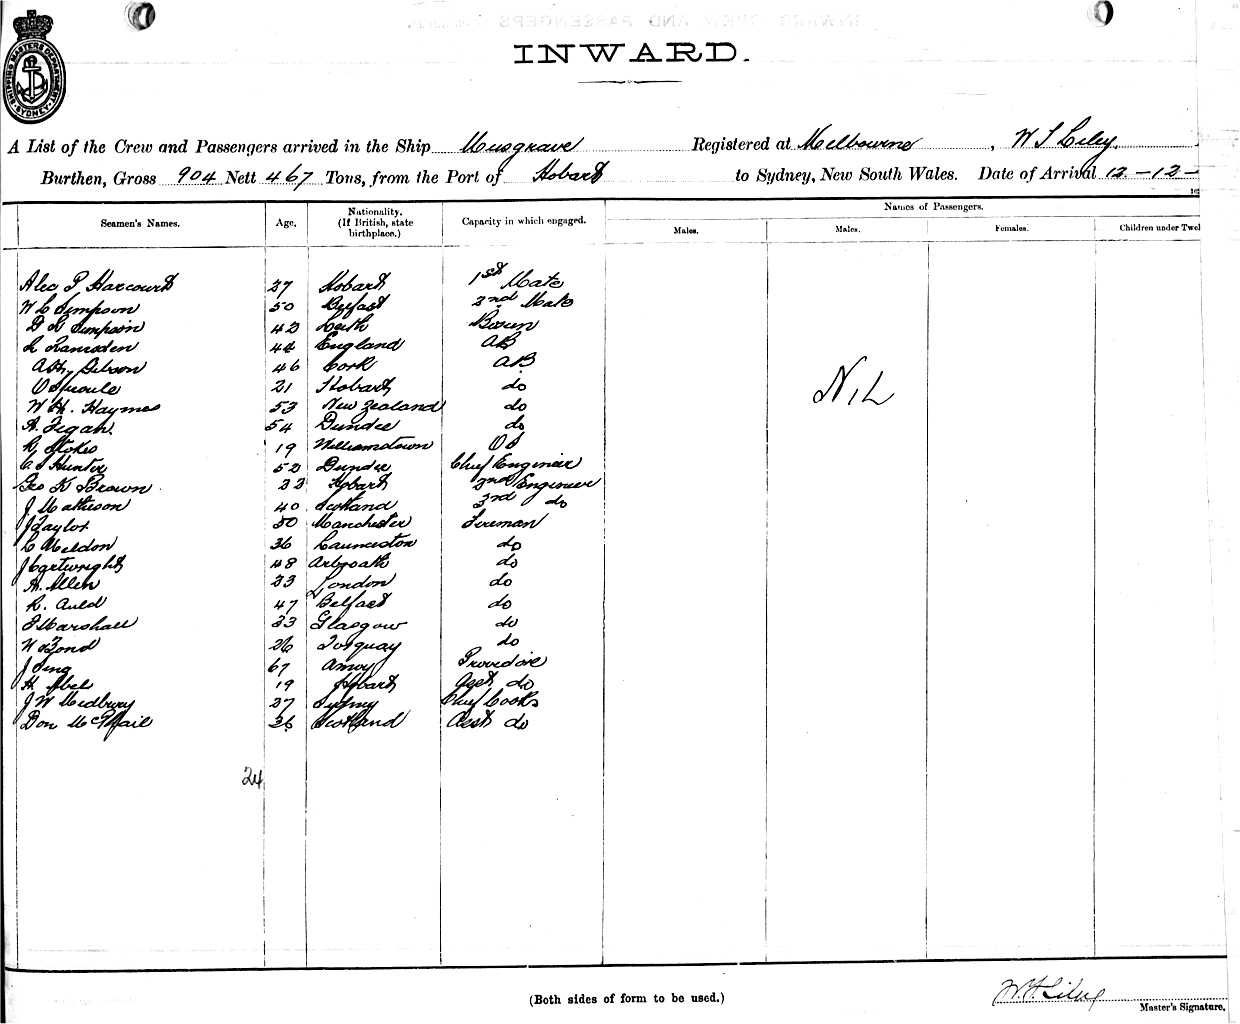 INWARD.
SHIPPING MASTERS DEPARTMENT SYDNEY
A List of the Crew and Passengers arrived in the Ship Musgrave Registered at Melbourne, W
Burthen, Gross 904 Nett 467 Tons, from the Port of Hobart to Sydney, New South Wales. Date of Arrival 12-12-
Names of Passengers.
Seamen's Names. Age. Nationality. (If British, state birthplace.) Capacity in which engaged. Males. Males. Females. Children under Twel
Alec P Harcourt 27 Hobart 1st Mate
W C Simpson 50 Belfast 2nd Mate
Simpson 42 Leith Bosun
R Ramsden 44 England AB
Gibson 46 Cork AB
O Sproule 21 Hobart do
W H. Haymes 53 New Zealand do
A. Fegan. 54 Dundee do
R Stokes 19 Williamstown OS
C S Hunter 52 Dundee Chief Engineer
Geo K Brown 33 Hobart 2nd Engineer
J Matheson 40 Scotland 3rd do
J Taylor 50 Manchester Fireman
C Weldon 36 Launceston do
J Cartwright 48 Arbroath do
H. Allen 33 London do
R. Auld 47 Belfast do
J Marshall 33 Glasgow do
W Bond 26 Torquay do
J 67 Amoy Providore
H Abel 19 Hobart Asst do
J W Medbury 27 Sydney Chief Cook
Don McPhail 36 Scotland Asst do
NIL
24
(Both sides of form to be used.)
Master's Signature.